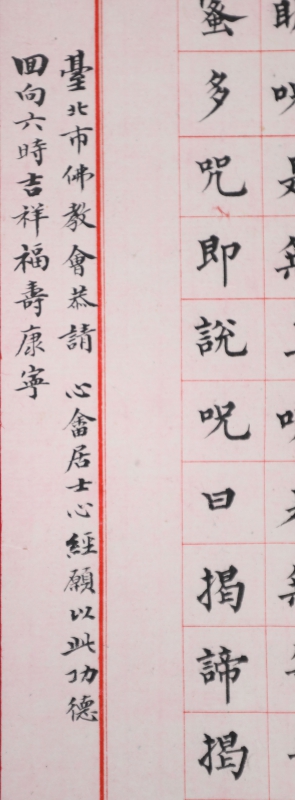 蜜多咒即說呪曰揭諦揭
臺北市佛教會恭請 心畬居士心經願以此功德
回向六時吉祥福壽康寧